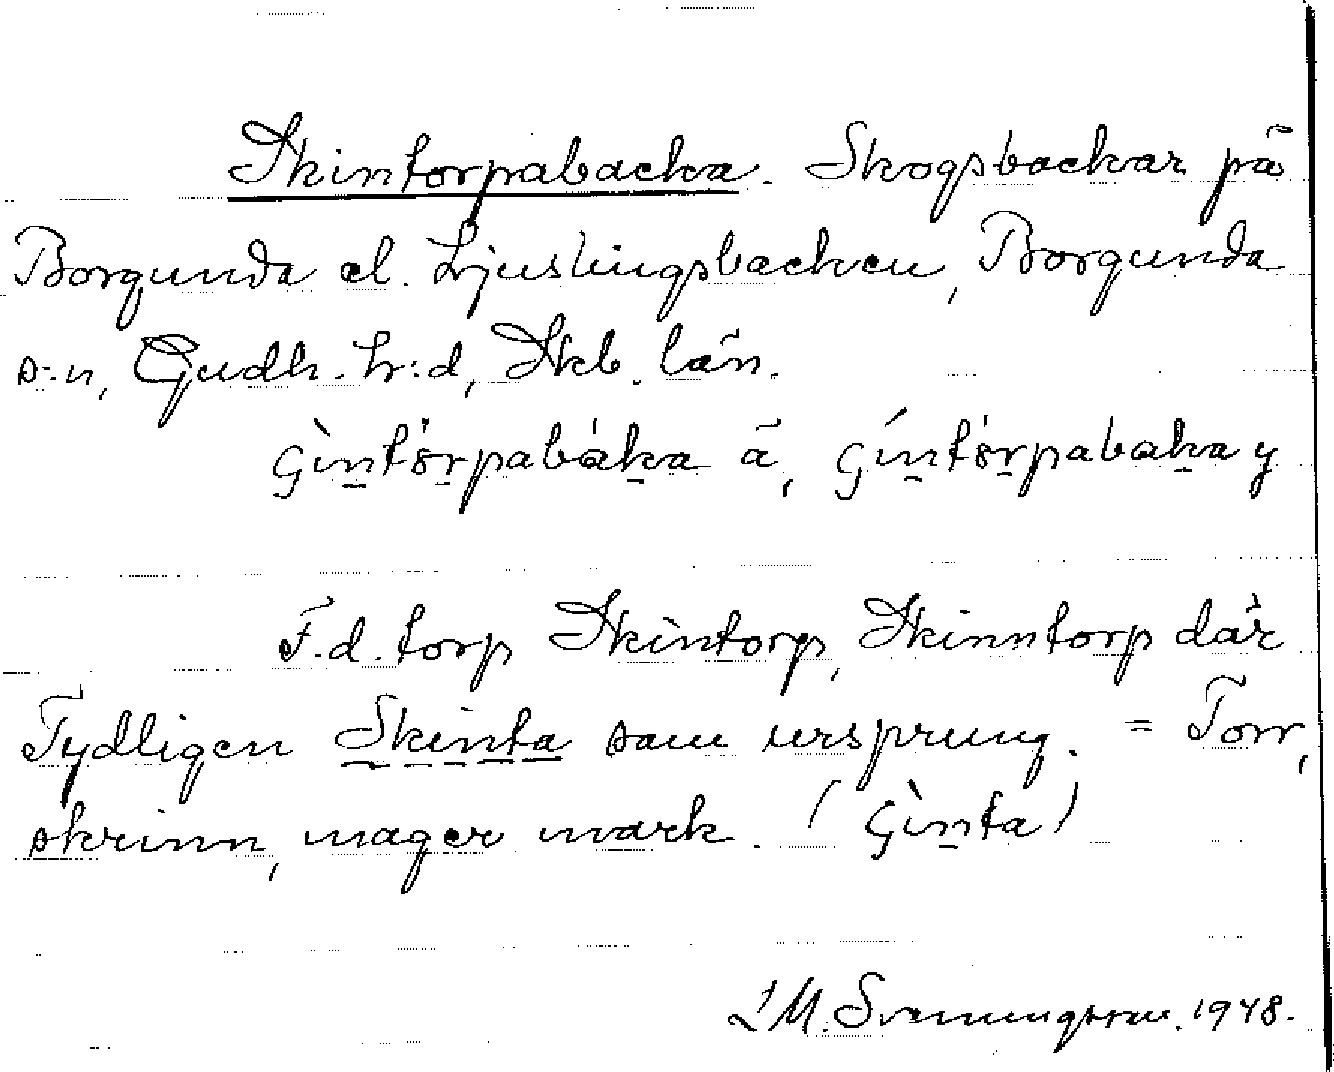 Skintorpabacka. Skogsbackar på
Borgunda el. Ljuslingsbacken, Borgunda
s:n, Gudh. h:d, Skb. län.
gìntôrpabáka ā, gíntôrpabaka y
F.d. torp Skintorp, Skinntorp där
Tydligen Skinta som ursprung. = Torr,
skrinn, mager mark. (gìnta)
L M. Svenungsson. 1948.